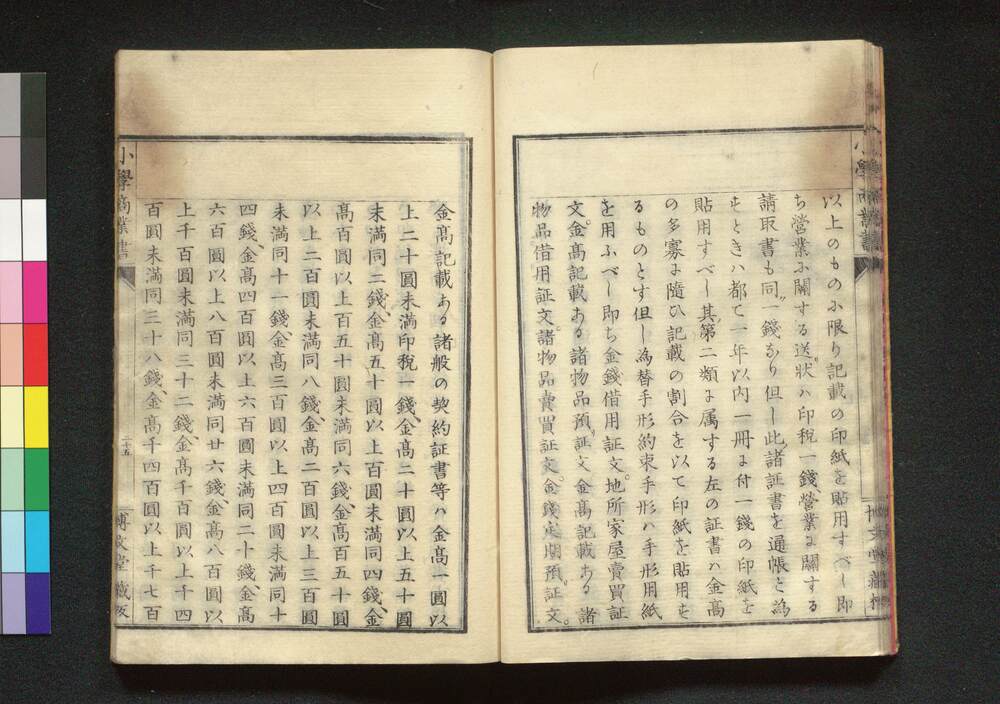 以上のものに限り記載の印紙を貼用すべし即
ち営業に關する送状ハ印税一錢營業に關する
請取書も同一錢なり但し此諸証書を通帳と為
すときハ都て一年以内一冊に付一錢の印紙を
貼用すべし其第二類に属する左の証書ハ金髙
の多寡に隨ひ記載の割合を以て印紙を貼用す
るものとす但し為替手形約束手形ハ手形用紙
を用ふべし即ち金錢借用証文。地所家屋賣買証
文。金髙記載ある諸物品預証文金髙記載ある諸
物品借用証文。諸物品賣買証文。金錢定期預証文。
小學商業書
博文堂藏板
金髙記載ある諸般の契約証書等ハ金髙一圓以
上二十圓未満印税一錢、金髙二十圓以上五十圓
未満同二錢、金髙五十圓以上百圓未満同四錢、金
髙百圓以上百五十圓未満同六錢、金髙百五十圓
以上二百圓未満同八錢、金髙二百圓以上三百圓
未満同十一錢、金髙三百圓以上四百圓未満同十
四錢、金髙四百圓以上六百圓未満同二十錢、金髙
六百圓以上八百圓未満同廿六錢、金髙八百圓以
上千百圓未満同三十二錢、金髙千百圓以上千四
百圓未満同三十八錢、金髙千四百圓以上千七百
小學商業書
二十五
博文堂藏板